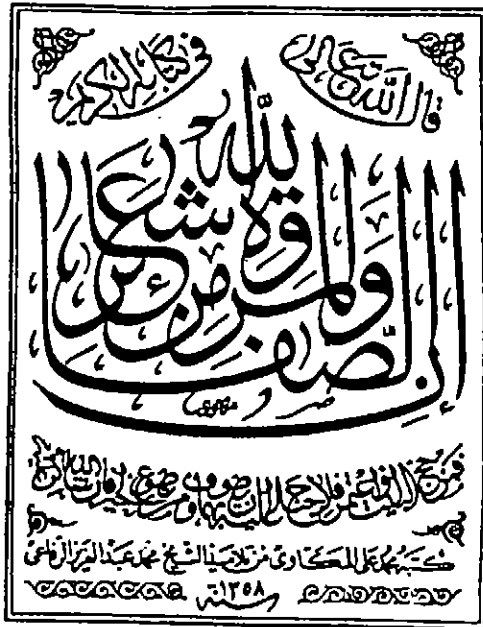 قال الله تعالى في كتابه الكريم
إن الصفا والمروة من شعائر الله
فمن حج البيت أو اعتمر فلا جناح عليه أن يطوف بهما ومن تطوع خيرا فإن الله شاكر
كتبه محمد علي المكاوي من تلاميذ الشيخ محمد عبد العزيز الرفاعي
سنة ١٣٥٨